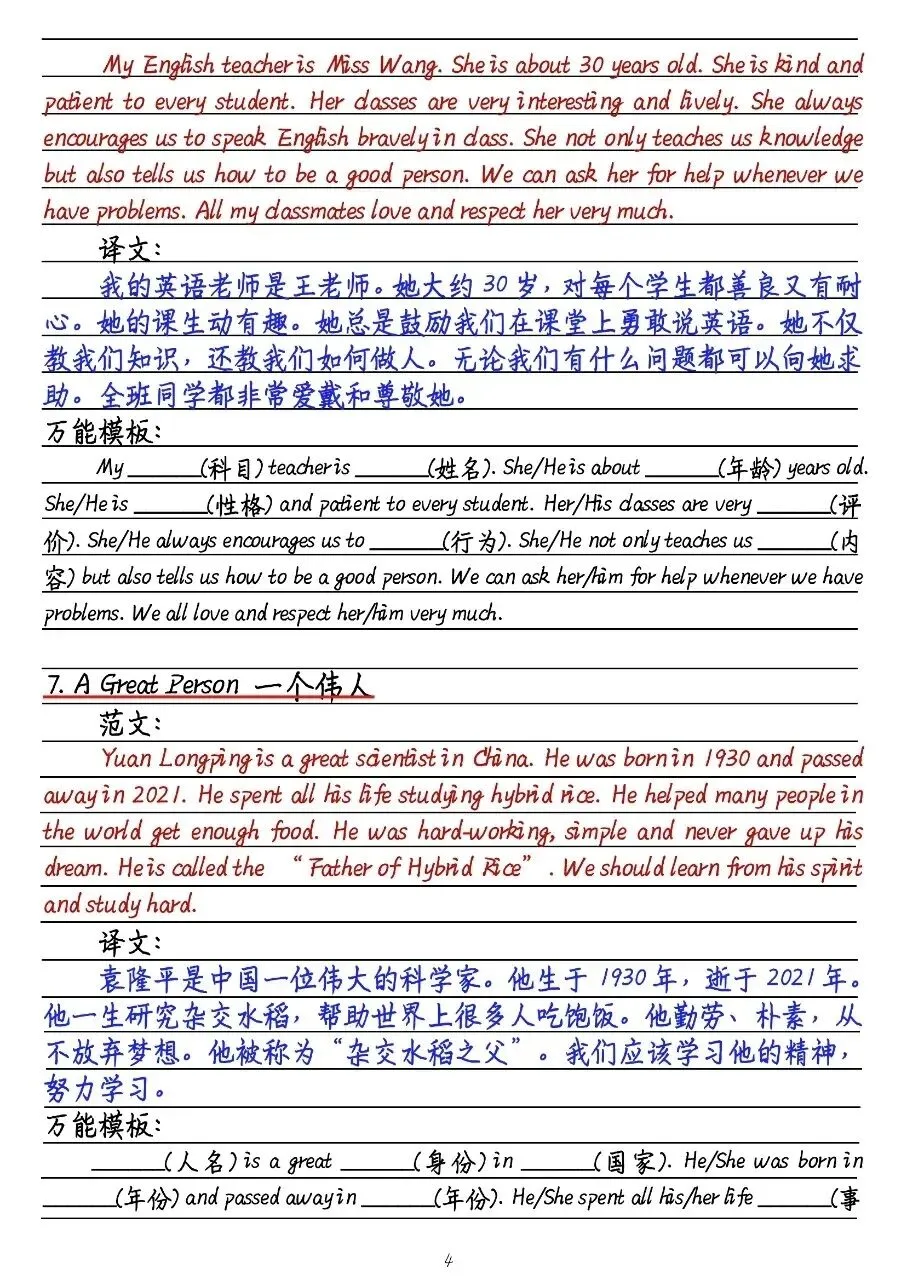 My English teacher is Miss Wang. She is about 30 years old. She is kind and
patient to every student. Her classes are very interesting and lively. She always
encourages us to speak English bravely in class. She not only teaches us knowledge
but also tells us how to be a good person. We can ask her for help whenever we
have problems. All my classmates love and respect her very much.
译文：
我的英语老师是王老师。她大约 30 岁，对每个学生都善良又有耐
心。她的课生动有趣。她总是鼓励我们在课堂上勇敢说英语。她不仅
教我们知识，还教我们如何做人。无论我们有什么问题都可以向她求
助。全班同学都非常爱戴和尊敬她。
万能模板：
My ______(科目) teacher is ______(姓名). She/He is about ______(年龄) years old.
She/He is ______(性格) and patient to every student. Her/His classes are very ______(评
价). She/He always encourages us to ______(行为). She/He not only teaches us ______(内
容) but also tells us how to be a good person. We can ask her/him for help whenever we have
problems. We all love and respect her/him very much.
7. A Great Person 一个伟人
范文：
Yuan Longping is a great scientist in China. He was born in 1930 and passed
away in 2021. He spent all his life studying hybrid rice. He helped many people in
the world get enough food. He was hard-working, simple and never gave up his
dream. He is called the “Father of Hybrid Rice”. We should learn from his spirit
and study hard.
译文：
袁隆平是中国一位伟大的科学家。他生于 1930 年，逝于 2021 年。
他一生研究杂交水稻，帮助世界上很多人吃饱饭。他勤劳、朴素，从
不放弃梦想。他被称为“杂交水稻之父”。我们应该学习他的精神，
努力学习。
万能模板：
______(人名) is a great ______(身份) in ______(国家). He/She was born in
______(年份) and passed away in ______(年份). He/She spent all his/her life ______(事
4